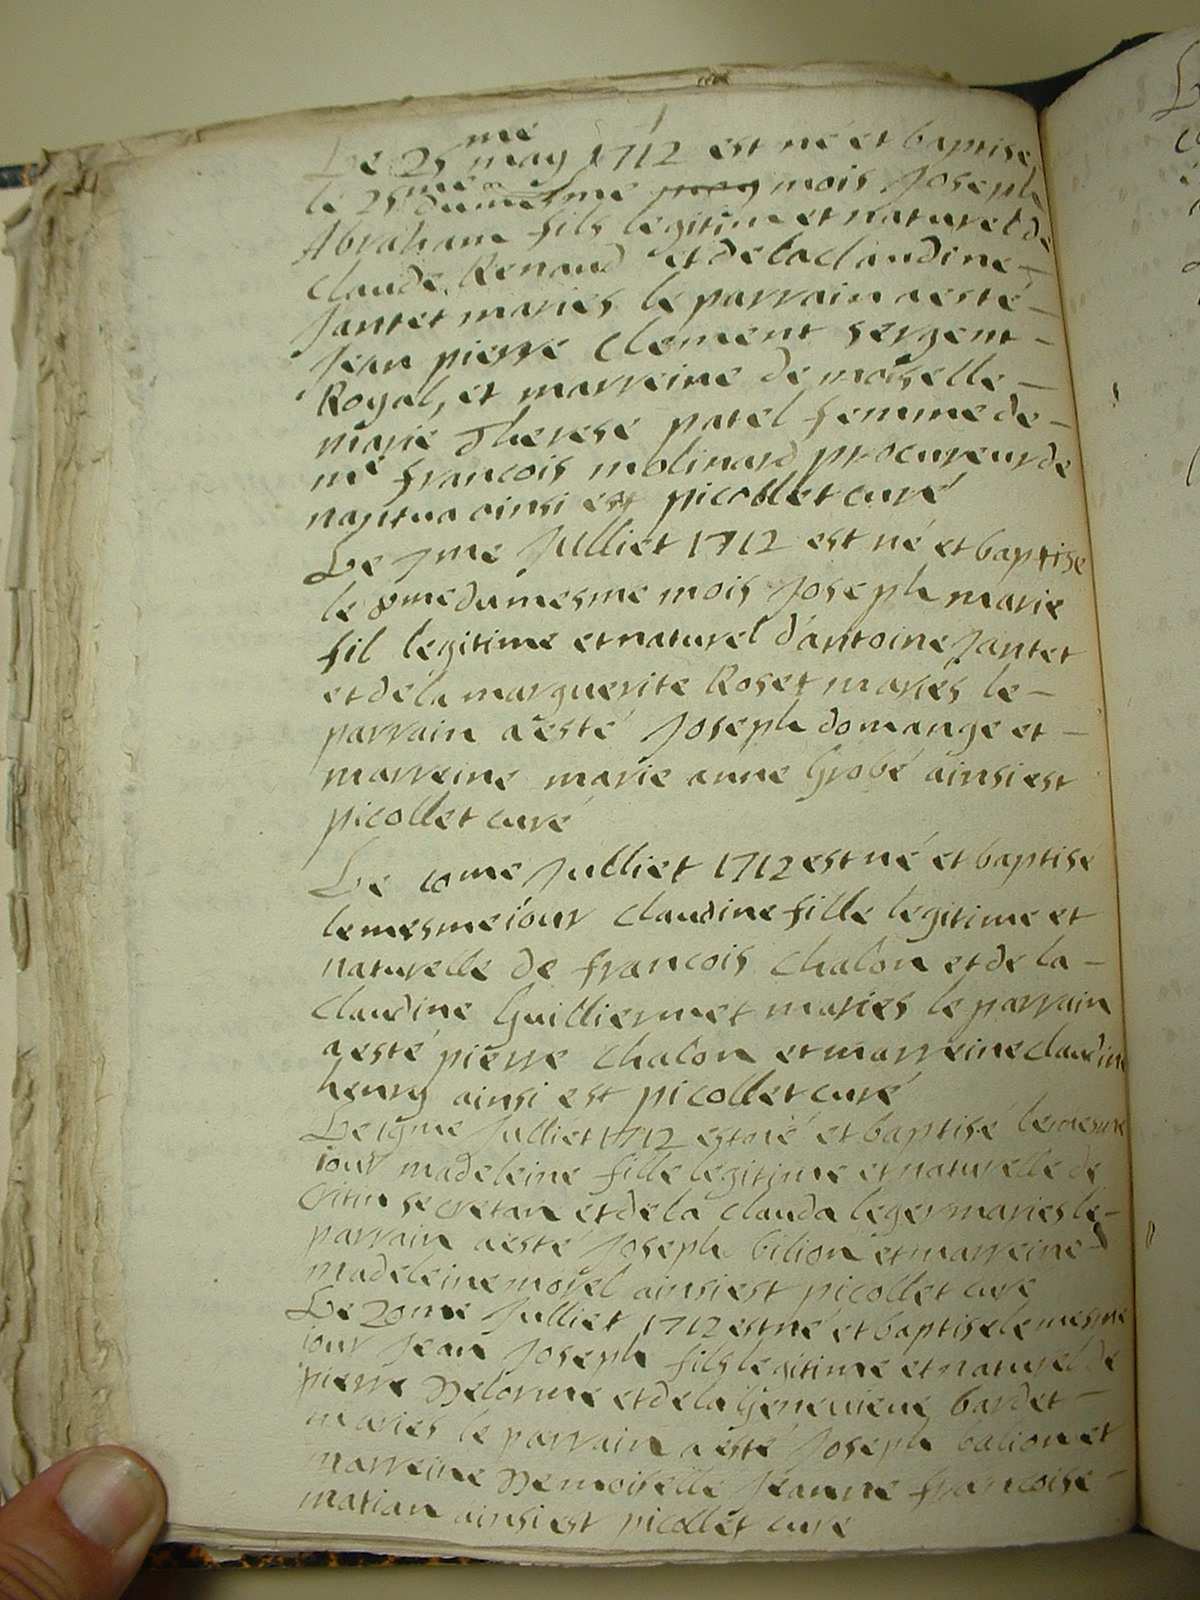 Le 25me may 1712 est né et baptise
le 25me du mesme may mois Joseph
Abraham fils legitime et naturel de
claude Renaud et de la claudine
Jantet mariés le parrain a esté
Jean pierre Clement sergent
Royal, et marreine demoiselle
marie Therese patel femme de
me francois molinard procureur de
nantua ainsi est picollet curé
Le 7me Julliet 1712 est né et baptise
le 8me du mesme mois Joseph marie
fil legitime et naturel d'antoine Jantet
et de la marguerite Roset mariés le
parrain a esté Joseph domange et
marreine marie anne Grobé ainsi est
picollet curé
Le 10me Julliet 1712 est né et baptisé
le mesme iour claudine fille legitime et
naturelle de francois Chalon et de la
Claudine Guilliermet mariés le parrain
a esté pierre Chalon et marreine claudine
henry ainsi est picollet curé
Le 19me Julliet 1712 est né et baptisé le mesme
iour madeleine fille legitime et naturelle de
secretan et de la clauda leger mariés le
parrain a esté Joseph bilion et marreine
madeleine morel ainsi est picollet curé
Le 20me Julliet 1712 est né et baptise le mesme
iour Jean Joseph fils legitime et naturel de
pierre Delorme et de la Genevieve bardet
mariés le parrain a esté Joseph balion et
marreine Demoiselle Jeanne francoise
matian ainsi est picollet curé